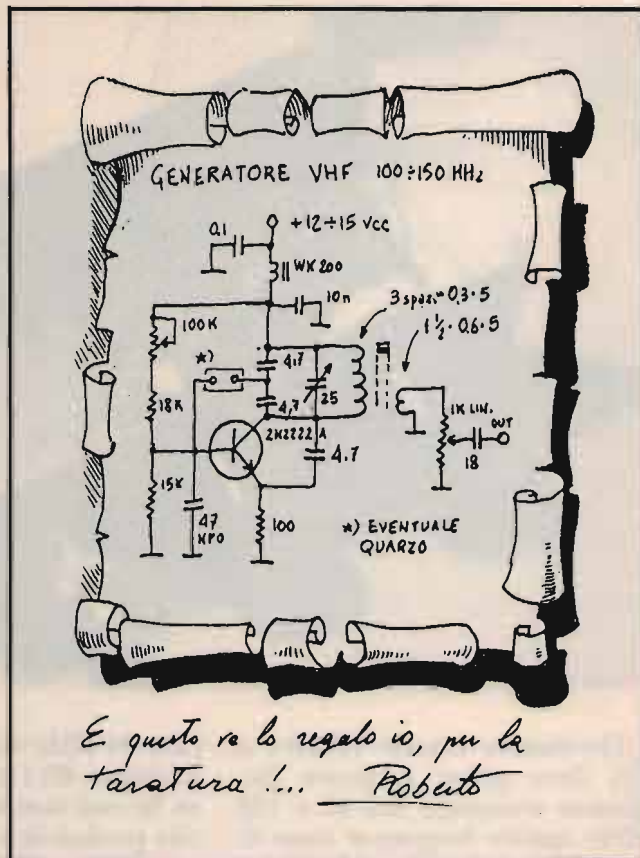 GENERATORE VHF 100÷150 MHz
+12÷15 Vcc
0.1
WK200
10n
3 spazi= 0.3·5
1 1/2 · 0.6·5
100K
*)
4.7
4.7
25
18K
2N2222 A
4.7
1K LIN.
OUT
18
15K
47
NPO
100
*) EVENTUALE
QUARZO
E questo ve lo regalo io, per la
taratura !... Roberto